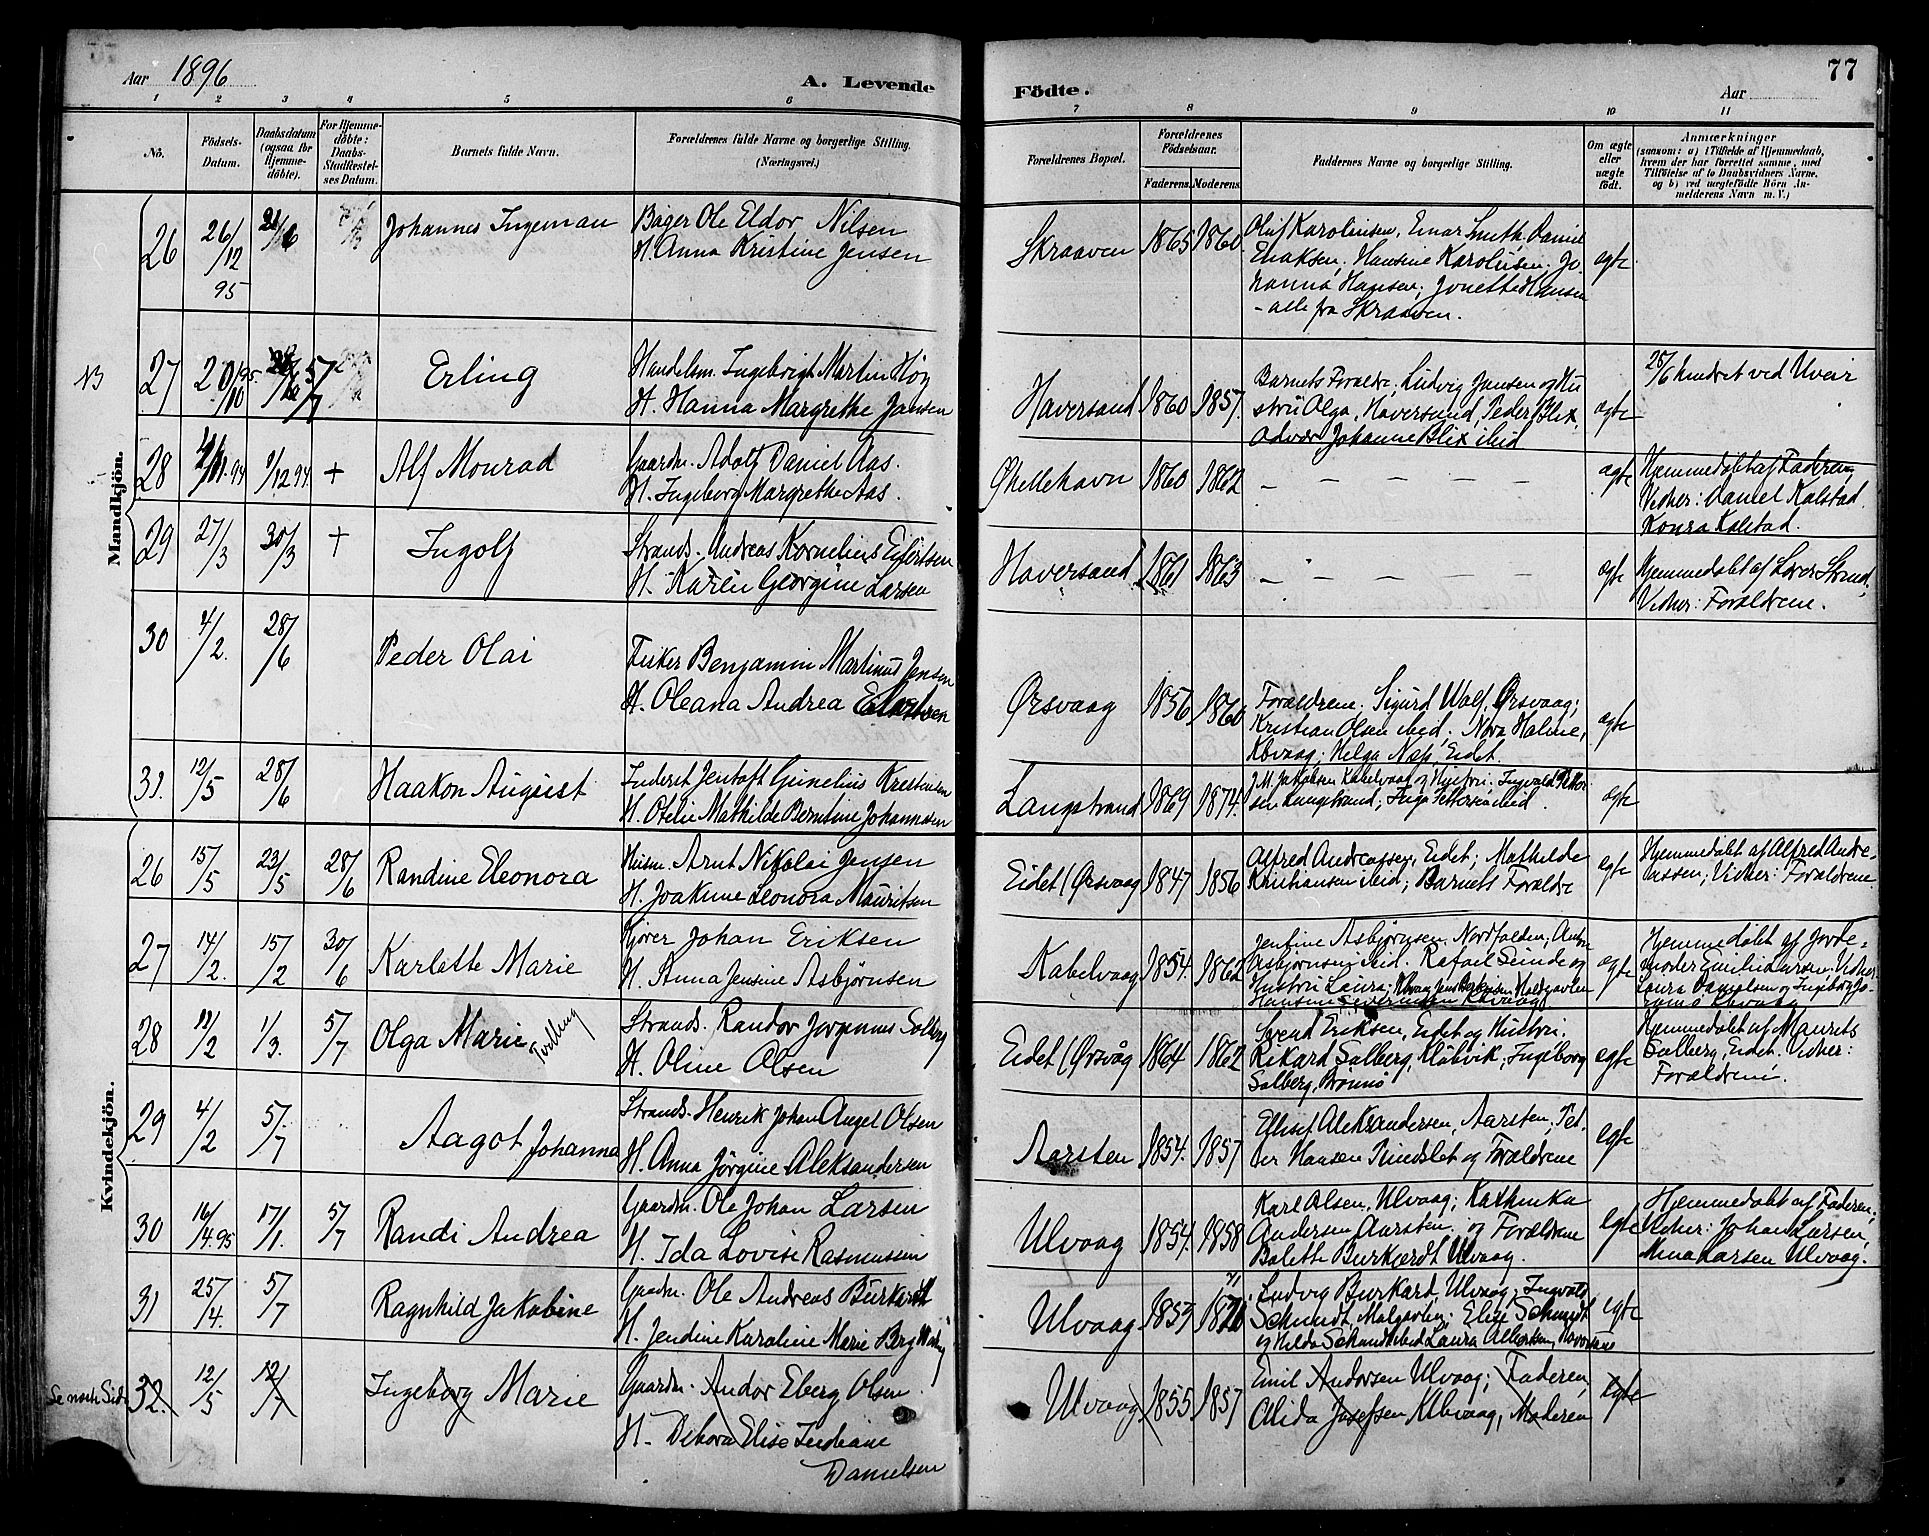 Aar 1896
A. Levende Födte.
Aar
77
1 2 3 4 5 6 7 8 9 10 11
No.
Födsels-Datum.
Daabsdatum (ogsaa for Hjemme-döbte).
For Hjemme-döbte: Daabs-Stadfestel-ses Datum.
Barnets fulde Navn.
Forældrenes fulde Navne og borgerlige Stilling. (Næringsvei.)
Forældrenes Bopæl.
Forældrenes Födselsaar.
Faderens. Moderens.
Faddernes Navne og borgerlige Stilling.
Om ægte eller uægte födt.
Anmærkninger
(saasom: a) i Tilfælde af Hjemmedaab, hvem der har forrettet samme, med Tilföielse af to Daabsvidners Navne, og b) ved uægtefödte Börn An-melderens Navn m. V.)
Mandkjön.
26 26/12 95 Johannes Ingeman
Bager Ole Eldor Nilsen
H. Anna Kristine Jensen
Skraaven 1865 1860
Oluf Karoliusen, Einar Smith, Daniel
Enaksen, Hansine Karoliusen. Jo-
hanna Hansen; Jonette Hansen
- alle fra Skraaven.
ægte
NB
27 20/10 95. 5/7 Erling
Handelsm. Ingebrigt Martin Höy
H. Hanna Margrethe Jansen
Haversand 1860 1857.
Barnets Forældre, Ludvig Jansen og Hu-
stru Olga, Haversund, Peder Blix,
Johanne Blix ibid
ægte
25/6 hindret ved Uveir
28 4/11.94 9/12 94 + Alf Monrad
Gaardm. Adolf Daniel Aas.
H. Ingeborg Margrethe Aas.
Øhellehavn 1860 1862
— — — — — —
ægte
Hjemmedøbt af Faderen,
Vidner: Daniel Kalstad.
Konra Kalstad.
29 27/3 30/3 + Ingolf
Strands. Andreas Kornelius Ejlertsen
H. Karen Georgine Larsen
Haversand 1861 1863
— — — — — —
ægte
Hjemmedøbt af Lærer Strand,
Vidner: Forældrene.
30 4/2. 28/6 Peder Olai
Fisker Benjamin Martinus Jensen
H. Oleana Andrea
Ørsvaag 1856 1860
Forældrene. Sigurd Wolf, Ørsvaag;
Kristian Olsen ibid. Nora Holme,
Kbvaag; Helga Nap, Eidet.
ægte
31. 12/5 28/6 Haakon August
Inderst Jentoft Gunelius Kristensen
H. Otelie Mathilde Berntine Johannesen
Langstrand 1869 1874.
J. M. Jakobsen Kabelvaag og Hustru. Ingvald Petter-
sen Langstrand; Inga Pettersen ibid.
ægte
Kvindekjön.
26 15/5 23/5 28/6 Randine Eleonora
Husm. Arnt Nikolai Jensen
H. Joakime Leonora Mauritsen
Eidet (Ørsvaag 1847 1856
Alfred Andreassen, Eidet; Mathilde
Kristiansen ibid; Barnets Forældre
ægte
Hjemmedøbt af Alfred Andre-
assen; Vidner: Forældrene.
27 14/2. 15/2 30/6 Karlotte Marie
Kjører Johan Eriksen
H. Anna Jensine Asbjørnsen
Kabelvaag 1854. 1862
Jentine Asbjørnsen, Nordfolden; Anton
Asbjørnsen ibid. Rafael Sunde og
Hustru Laura; Molgavlen
Hansine Severinsen Kbvaag
ægte
Hjemmedøbt af Jorde-
moder Emilie Larsen. Vidner:
Laura Danielsen og Ingeborg Jo-
hanna Kbvaag
28 12/2 1/3. 5/7 Olga Marie Tvilling
Strands. Randor Jorgannes Solberg
H. Oline Olsen
Eidet (Ørsvåg 1864 1862
Svend Eriksen, Eidet og Hustru.
Rikard Solberg, Klabvik; Ingeborg
Solberg, Brønnø
ægte
Hjemmedøbt af Maurits
Solberg, Eidet. Vidner:
Forældrene.
29 4/2 5/7 Aagot Johanna
Strands. Henrik Johan Angel Olsen
H. Anna Jörgine Aleksandersen
Aarsten 1854. 1857
Elliset Aleksandersen, Aarsten, Pet-
ter Hansen Rindslet og Forældrene
ægte
30 16/4.95 17/1. 5/7 Randi Andrea
Gaardm. Ole Johan Larsen
H. Ida Lovise Rasmussen
Ulvaag 1854. 1858
Karl Olsen, Ulvaag; Kathinka
Andersen Aarsten. og Forældrene
Bolette Burkardt Ulvaag.
ægte
Hjemmedøbt af Faderen,
Vidner: Johan Larsen,
Mina Larsen Ulvaag.
31 25/4. 5/7 Ragnhild Jakobine
Gaardm. Ole Andreas Burkardt
H. Jendine Karoline Marie Berg
Ulvaag 1853 1871
Ludvig Burkard, Ulvaag; Ingvald
Schmidt, Molgavlen; Elise Schmidt
og Hilda Schmidt ibid Laura Albertsen,
ægte
Se næste Side
32. 12/5 12/7 Ingeborg Marie
Gaardm. Andor Eberg Olsen
H. Debora Elise Indiane
Danielsen
Ulvaag 1855 1857
Emil Andorsen Ulvaag; Faderen,
Alida Josefsen Kbvaag, Moderen
ægte